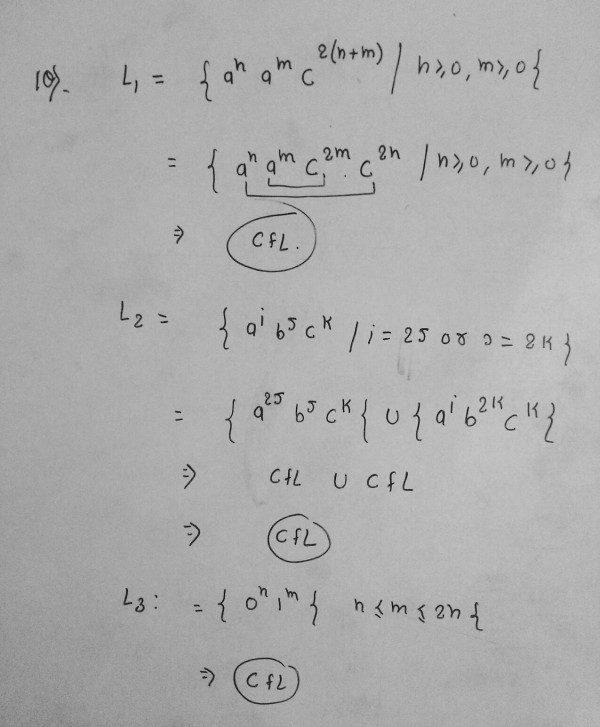 10). L₁ = { aⁿ aᵐ c²⁽ⁿ⁺ᵐ⁾ / n≥0, m≥0 {
= { aⁿ aᵐ c²ᵐ . c²ⁿ / n≥0, m≥0 }
⇒ CfL.
L₂ = { aⁱ b^J c^K / i = 2J or J = 2K }
= { a^2J b^J c^K { ∪ { aⁱ b^2K c^K }
⇒ CfL ∪ CfL
⇒ CfL
L₃: = { 0ⁿ 1ᵐ } n ≤ m ≤ 2n {
⇒ CfL